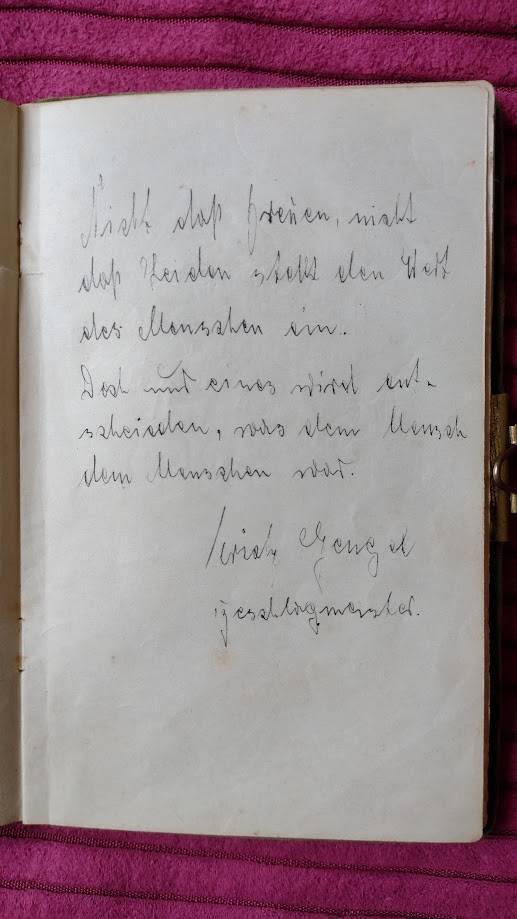 Nicht daß Freuen, nicht
daß Leiden stellt den Wert
des Menschen ein.
Doch nur eines wird ent-
scheiden, was dem Mensch
dem Menschen war.
Erich